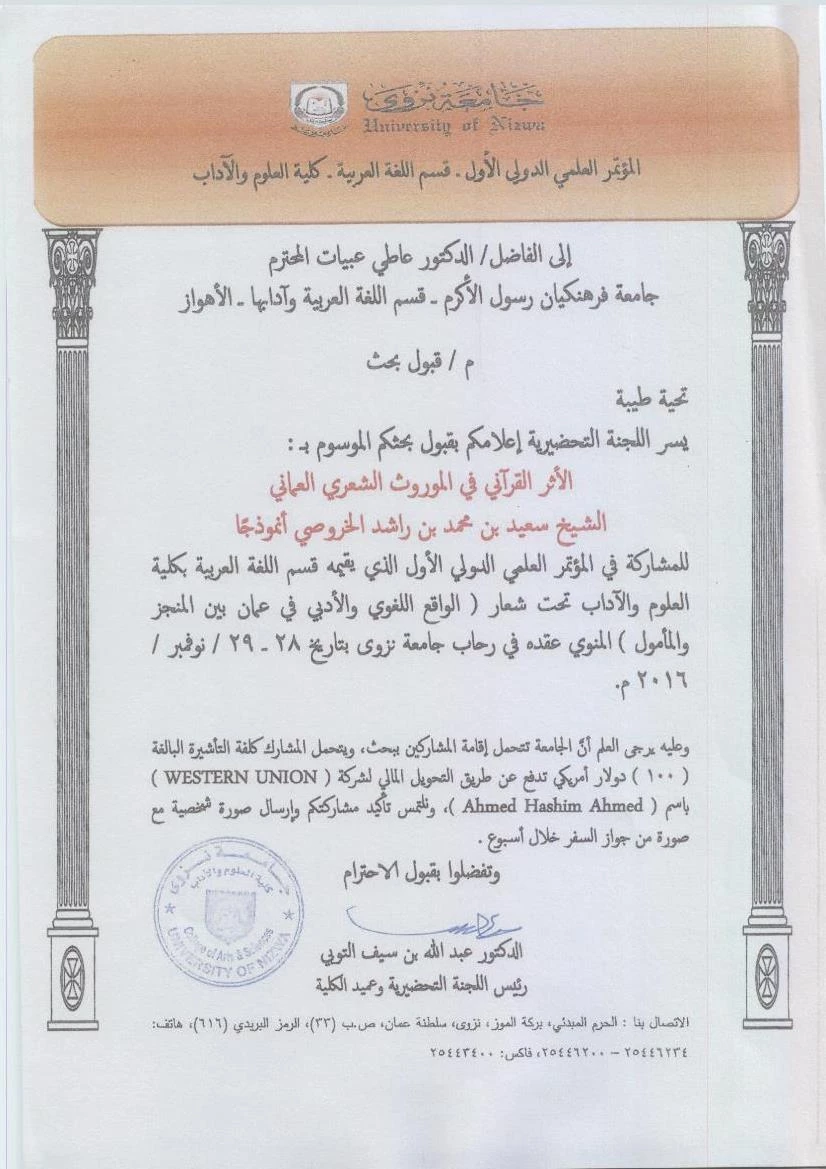 جامعة نزوى
University of Nizwa
المؤتمر العلمي الدولي الأول ـ قسم اللغة العربية ـ كلية العلوم والآداب
إلى الفاضل/ الدكتور عاطي عبيات المحترم
جامعة فرهنكيان رسول الأكرم ـ قسم اللغة العربية وآدابها ـ الأهواز
م / قبول بحث
تحية طيبة
يسر اللجنة التحضيرية إعلامكم بقبول بحثكم الموسوم بـ :
الأثر القرآني في الموروث الشعري العماني
الشيخ سعيد بن محمد بن راشد الخروصي أنموذجًا
للمشاركة في المؤتمر العلمي الدولي الأول الذي يقيمه قسم اللغة العربية بكلية
العلوم والآداب تحت شعار ( الواقع اللغوي والأدبي في عمان بين المنجز
والمأمول ) المنوي عقده في رحاب جامعة نزوى بتاريخ ٢٨ ـ ٢٩ / نوفمبر /
٢٠١٦ م.
وعليه يرجى العلم أنَّ الجامعة تتحمل إقامة المشاركين ببحث، ويتحمل المشارك كلفة التأشيرة البالغة
( ١٠٠ ) دولار أمريكي تدفع عن طريق التحويل المالي لشركة ( WESTERN UNION )
باسم ( Ahmed Hashim Ahmed )، ونلتمس تأكيد مشاركتكم وإرسال صورة شخصية مع
صورة من جواز السفر خلال أسبوع .
وتفضلوا بقبول الاحترام
جامعة نزوى
كلية العلوم والآداب
College of Arts & Sciences
UNIVERSITY OF NIZWA
الدكتور عبد الله بن سيف التوبي
رئيس اللجنة التحضيرية وعميد الكلية
الاتصال بنا : الحرم المبدئي، بركة الموز، نزوى، سلطنة عمان، ص.ب (٣٣)، الرمز البريدي (٦١٦)، هاتف:
٢٥٤٤٦٢٣٤ – ٢٥٤٤٦٢٠٠، فاكس: ٢٥٤٤٣٤٠٠